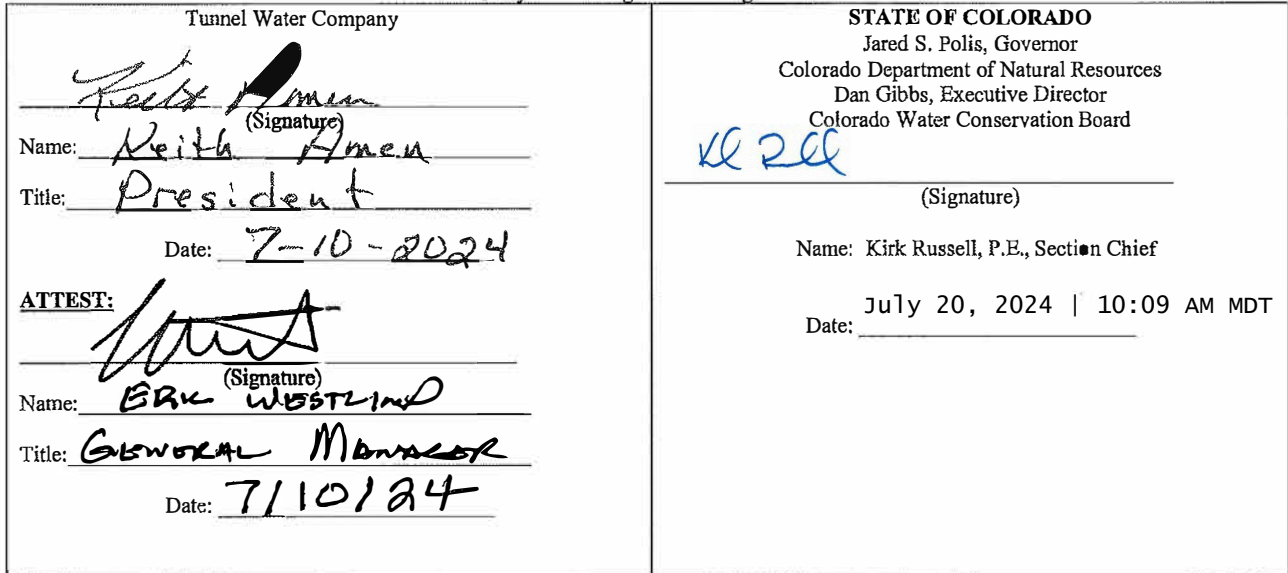 Tunnel Water Company
Keith Amen
(Signature)
Name: Keith Amen
Title: President
Date: 7-10-2024
ATTEST:
(Signature)
Name: ERIK WESTLIND
Title: GENERAL MANAGER
Date: 7/10/24
STATE OF COLORADO
Jared S. Polis, Governor
Colorado Department of Natural Resources
Dan Gibbs, Executive Director
Colorado Water Conservation Board
(Signature)
Name: Kirk Russell, P.E., Section Chief
July 20, 2024 | 10:09 AM MDT
Date: